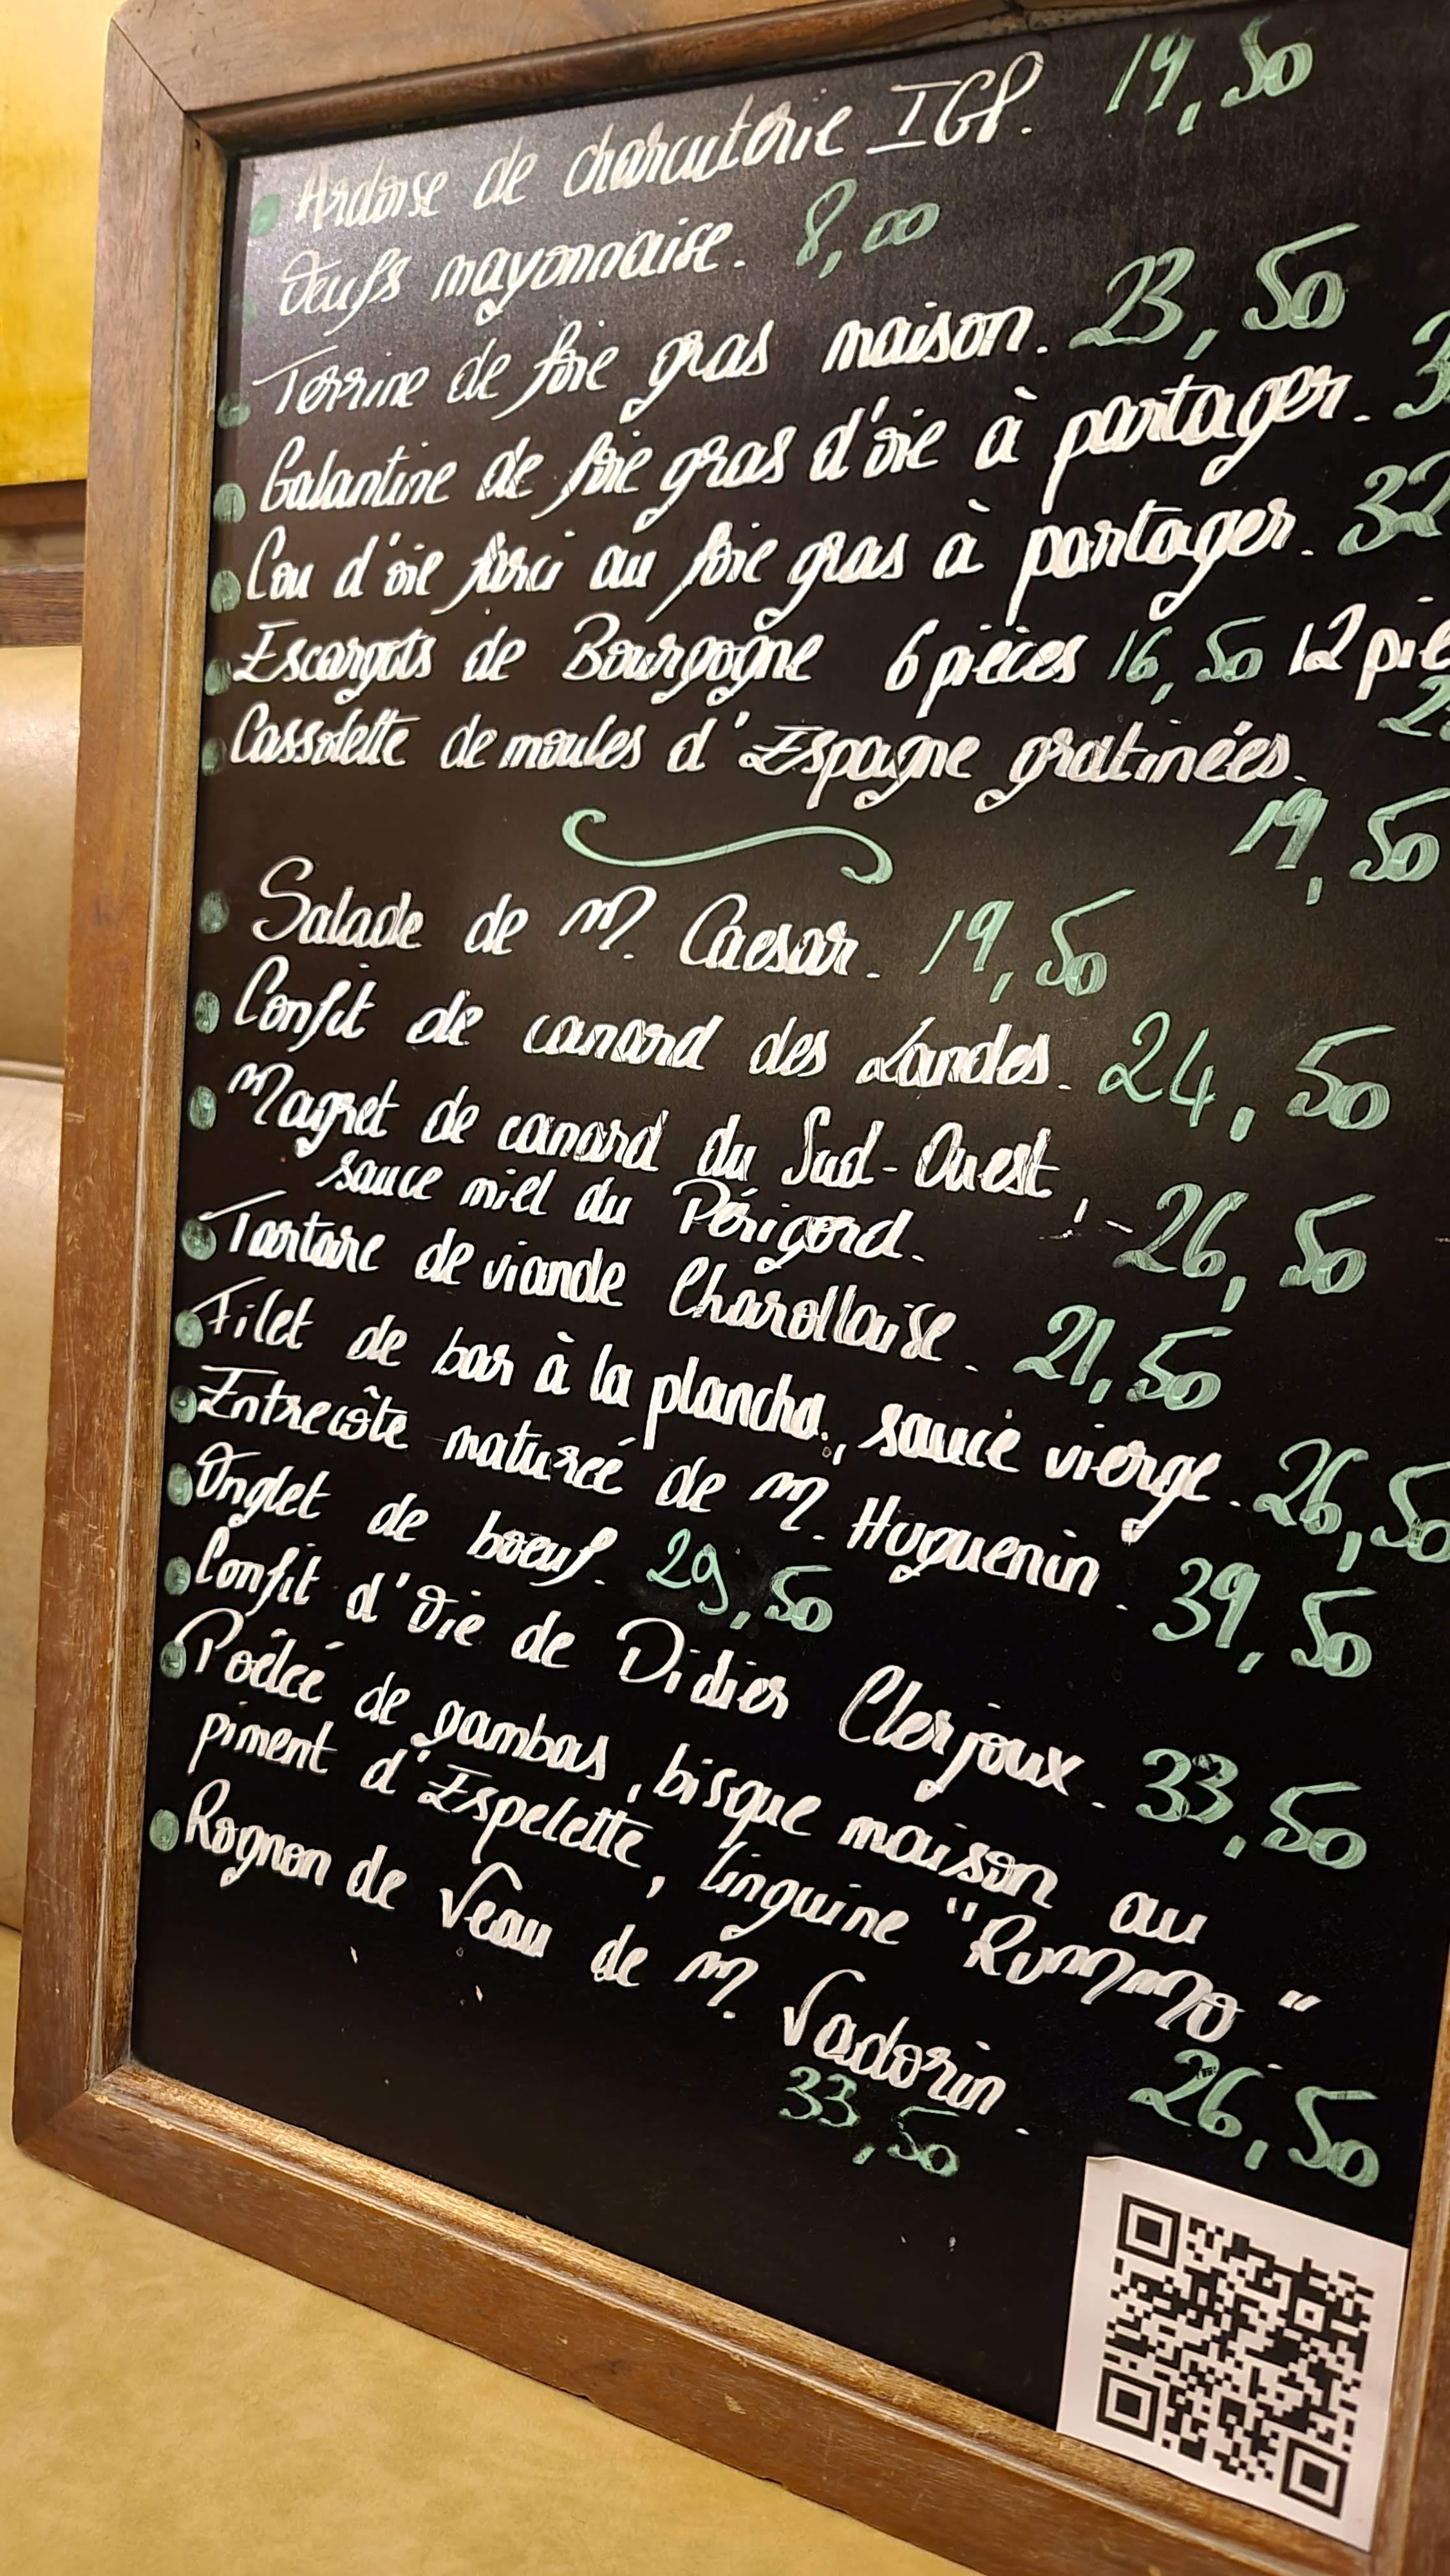 Ardoise de charcuterie IGP. 19,50
Oeufs mayonnaise. 8,00
Terrine de foie gras maison. 23,50
Galantine de foie gras d'oie à partager. 3
Cou d'oie farci au foie gras à partager. 32
Escargots de Bourgogne 6 pièces 16,50 12 piè
2
Cassolette de moules d'Espagne gratinées.
19,50
Salade de M. Caesar. 19,50
Confit de canard des Landes. 24,50
Magret de canard du Sud-Ouest,
sauce miel du Périgord. 26,50
Tartare de viande Charollaise. 21,50
Filet de bar à la plancha, sauce vierge. 26,50
Entrecôte maturée de M. Huguenin. 39,50
Onglet de boeuf. 29,50
Confit d'Oie de Didier Clerjoux. 33,50
Poêlée de gambas, bisque maison au
piment d'Espelette, linguine "Rummo"
26,50
Rognon de Veau de M. Vadorin.
33,50